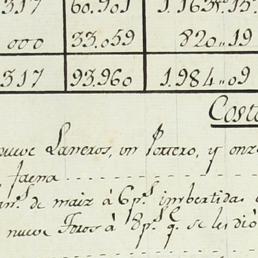 317 60.901 1.163 15
000 33.059 820 19
317 93.960 1.984 09
Costo
nueve Laneros, un Potrero, y onze
faena
an.s de maiz à 6 p.s imbertidas
nueve Toros à 8 p.s q. se les diò